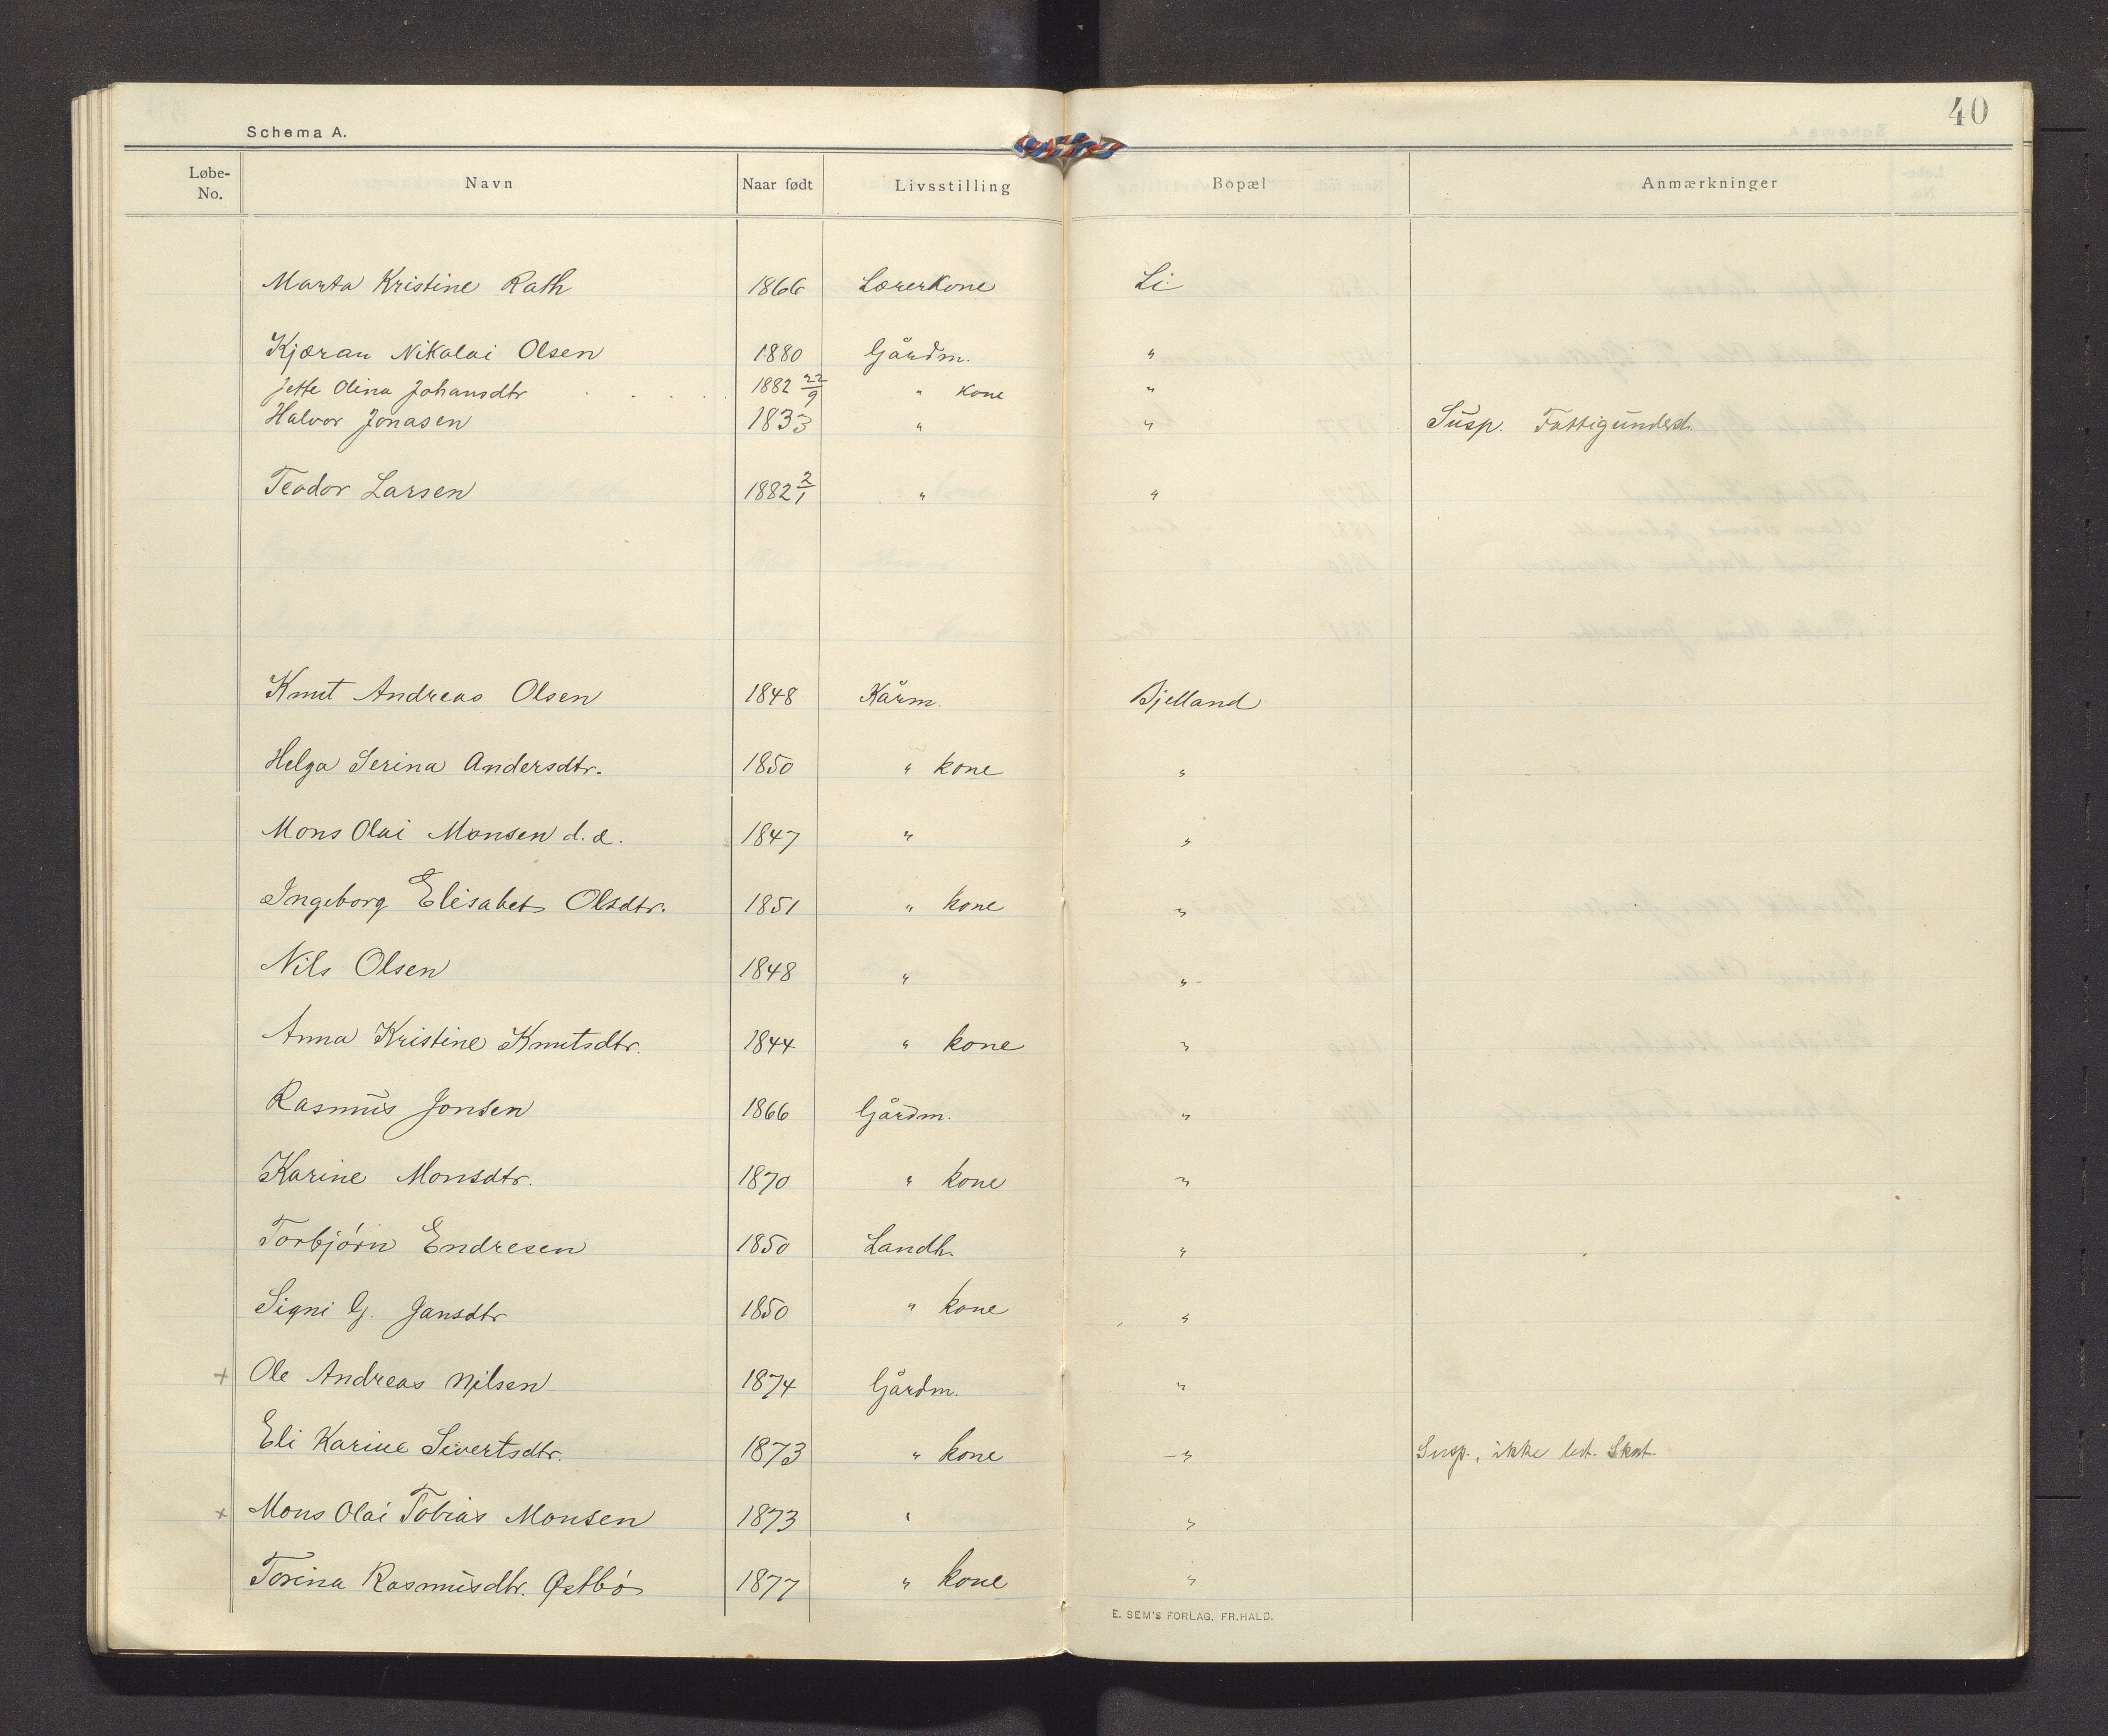 40
Schema A.
Løbe-No. Navn Naar født Livsstilling Bopæl Anmærkninger
Marta Kristine Rath 1866 Lærerkone Li
Kjæran Nikolai Olsen 1880 Gårdm. "
Jette Olina Johansdtr . . . . 1882 22/9 " kone "
Halvor Jonasen 1833 " " Susp. Fattigunderst.
Teodor Larsen 1882 2/1 " "
Knut Andreas Olsen 1848 Kårm. Bjelland
Helga Serina Andersdtr. 1850 " kone "
Mons Olai Monsen d. æ. 1847 " "
Ingeborg Elisabet Olsdtr. 1851 " kone "
Nils Olsen 1848 " "
Anna Kristine Knutsdtr. 1844 " kone "
Rasmus Jonsen 1866 Gårdm. "
Karine Monsdtr. 1870 " kone "
Torbjörn Endresen 1850 Landh. "
Signi G. Jansdtr 1850 " kone "
+ Ole Andreas Nilsen 1874 Gårdm. "
Eli Karine Sivertsdtr. 1873 " kone " Susp., ikke bet. Skat.
+ Mons Olai Tobias Monsen 1873 " "
Torina Rasmusdtr. Østbö 1877 " kone "
E. SEM'S FORLAG. FR.HALD.